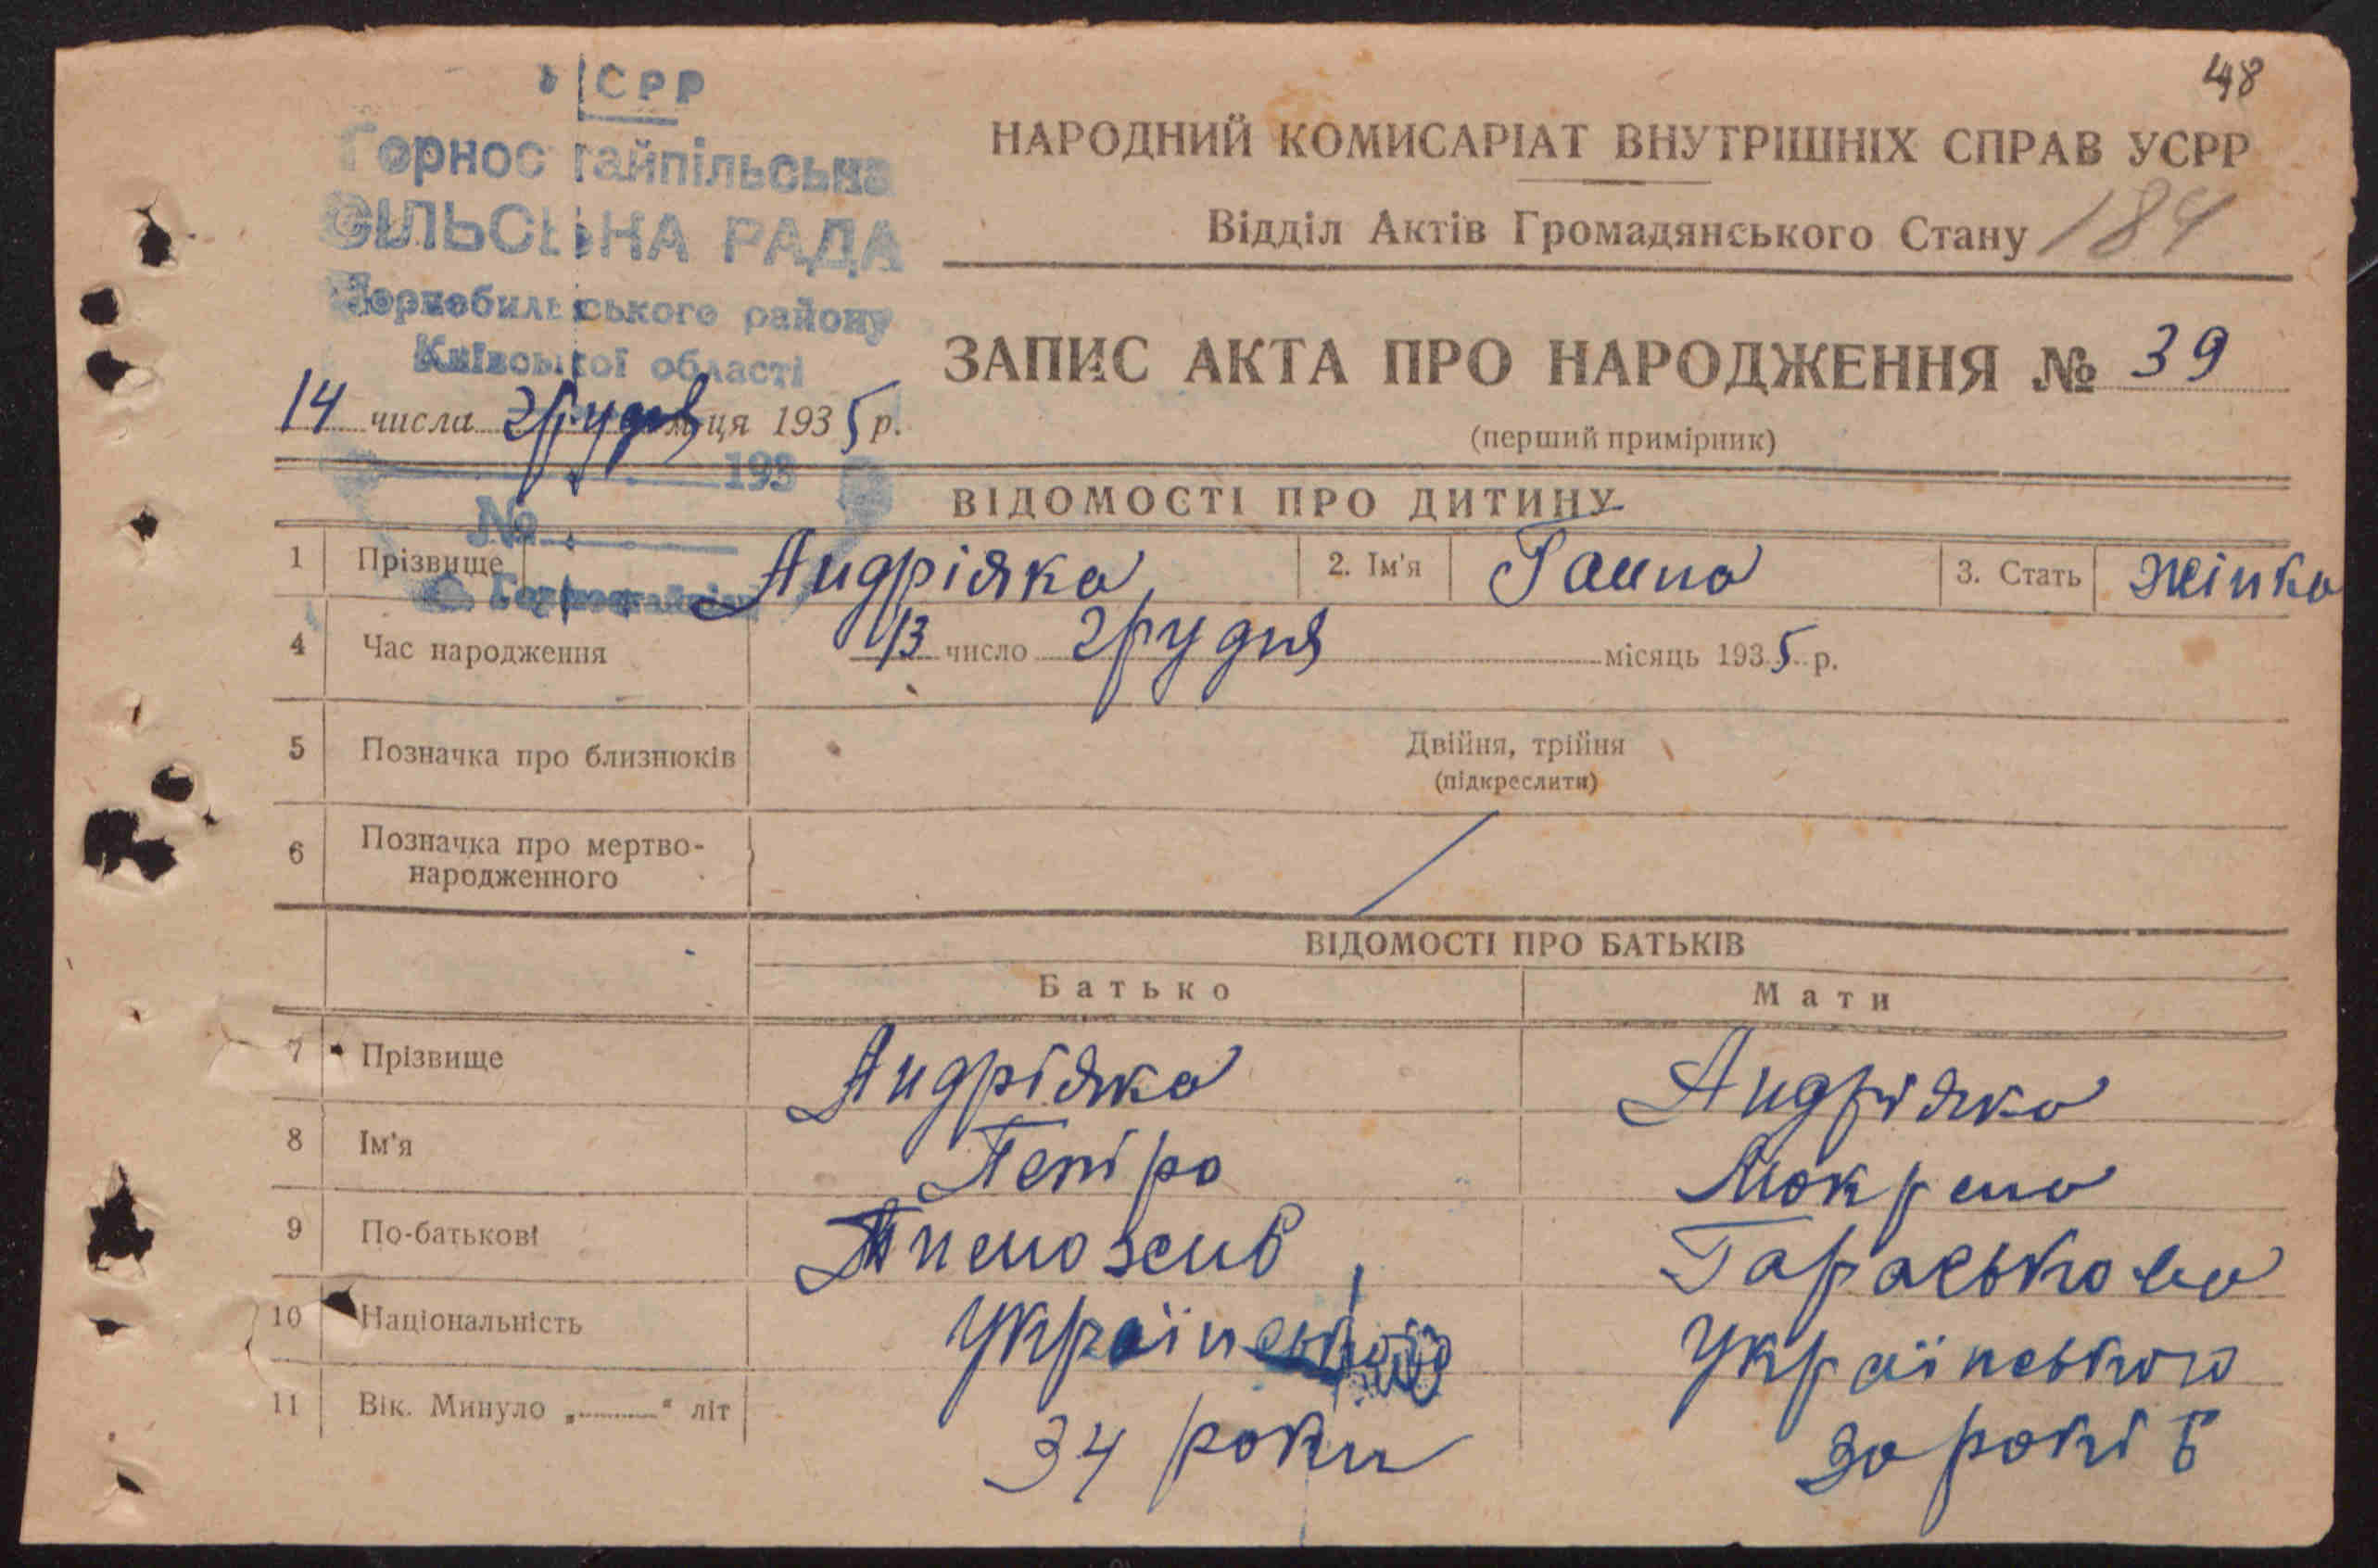 48
СРР
Горностайпільська
СІЛЬСЬКА РАДА
Чорнобильського району
Київської області
НАРОДНИЙ КОМИСАРІАТ ВНУТРІШНІХ СПРАВ УСРР
Відділ Актів Громадянського Стану 184
ЗАПИС АКТА ПРО НАРОДЖЕННЯ № 39
(перший примірник)
14 числа грудня м-ця 1935 р.
193
№
ВІДОМОСТІ ПРО ДИТИНУ
1 Прізвище Андріяка 2. Ім'я Ганна 3. Стать жінка
4 Час народження 13 число грудня місяць 1935 р.
5 Позначка про близнюків Двійня, трійня
(підкреслити)
6 Позначка про мертво-
народженного
ВІДОМОСТІ ПРО БАТЬКІВ
Батько Мати
7 Прізвище Андріяка Андріяка
8 Ім'я Петро Мокрена
9 По-батькові Гараськова
10 Національність Українською
11 Вік. Минуло „ “ літ 34 роки 30 років